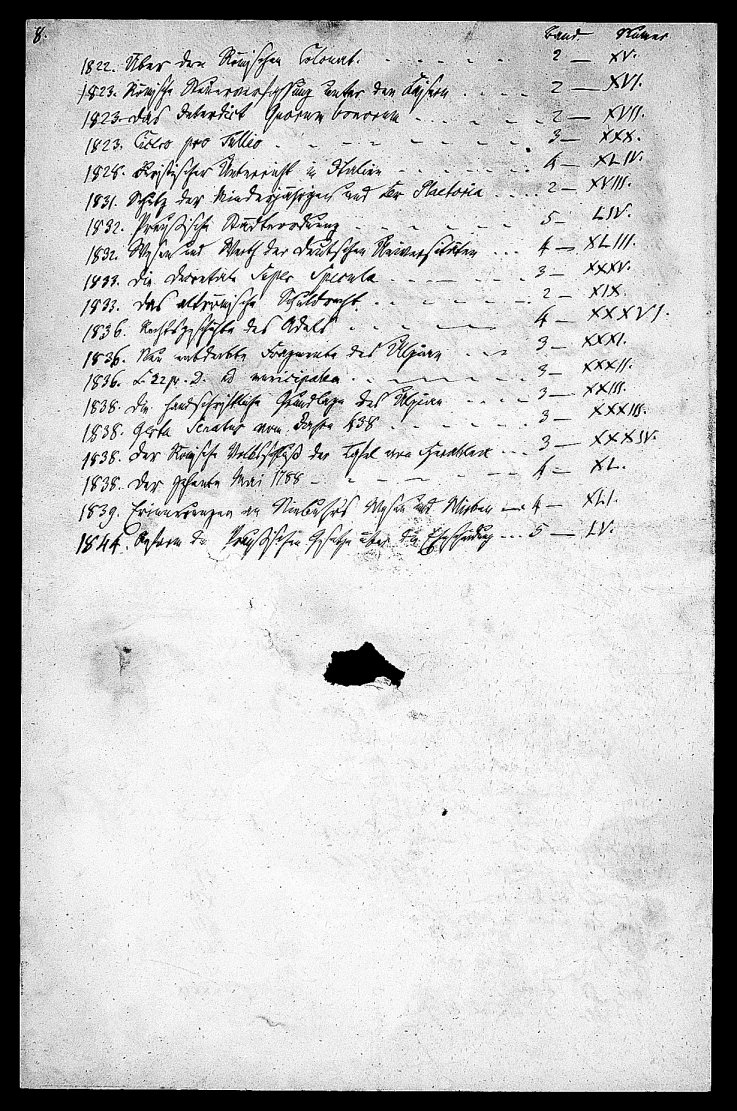 8.
Band. Numer
1822. Über den Römischen Colonat. 2 — XV.
1823. Römische Steuerverfassung unter den Kaisern 2 — XVI.
1823. Das Interdict Quorum bonorum 2 — XVII.
1823. Cicero pro Tullio 3 — XXX.
1828. Juristischer Unterricht in Italien 4 — XLIV.
1831. Schutz der Minderjährigen und der Plaetoria 2 — XVIII.
1832. Preußische Städteordnung 5 — LIV.
1832. Wesen und Werth der deutschen Universitäten 4 — XLIII.
1833. Die Decretale Super Specula 3 — XXXV.
1833. Das altrömische Schuldrecht 2 — XIX.
1836. Rechtsgeschichte des Adels 4 — XXXVI.
1836. Neu entdeckte Fragmente des Ulpian 3 — XXXI.
1836. L. 22 pr. D. ad municipalem 3 — XXXII.
1838. Die handschriftliche Grundlage des Ulpian 3 — XXIII.
1838. Gesta Senatus vom Jahre 438 3 — XXXIII.
1838. Der Römische Volksschluß der Tafel von Heraklea 3 — XXXIV.
1838. Der zehente Mai 1788 4 — XL.
1839. Erinnerungen an Niebuhr's Wesen und Wirken 4 — XLI.
1844. Reform der Preußischen Gesetze über die Ehescheidung 5 — LV.